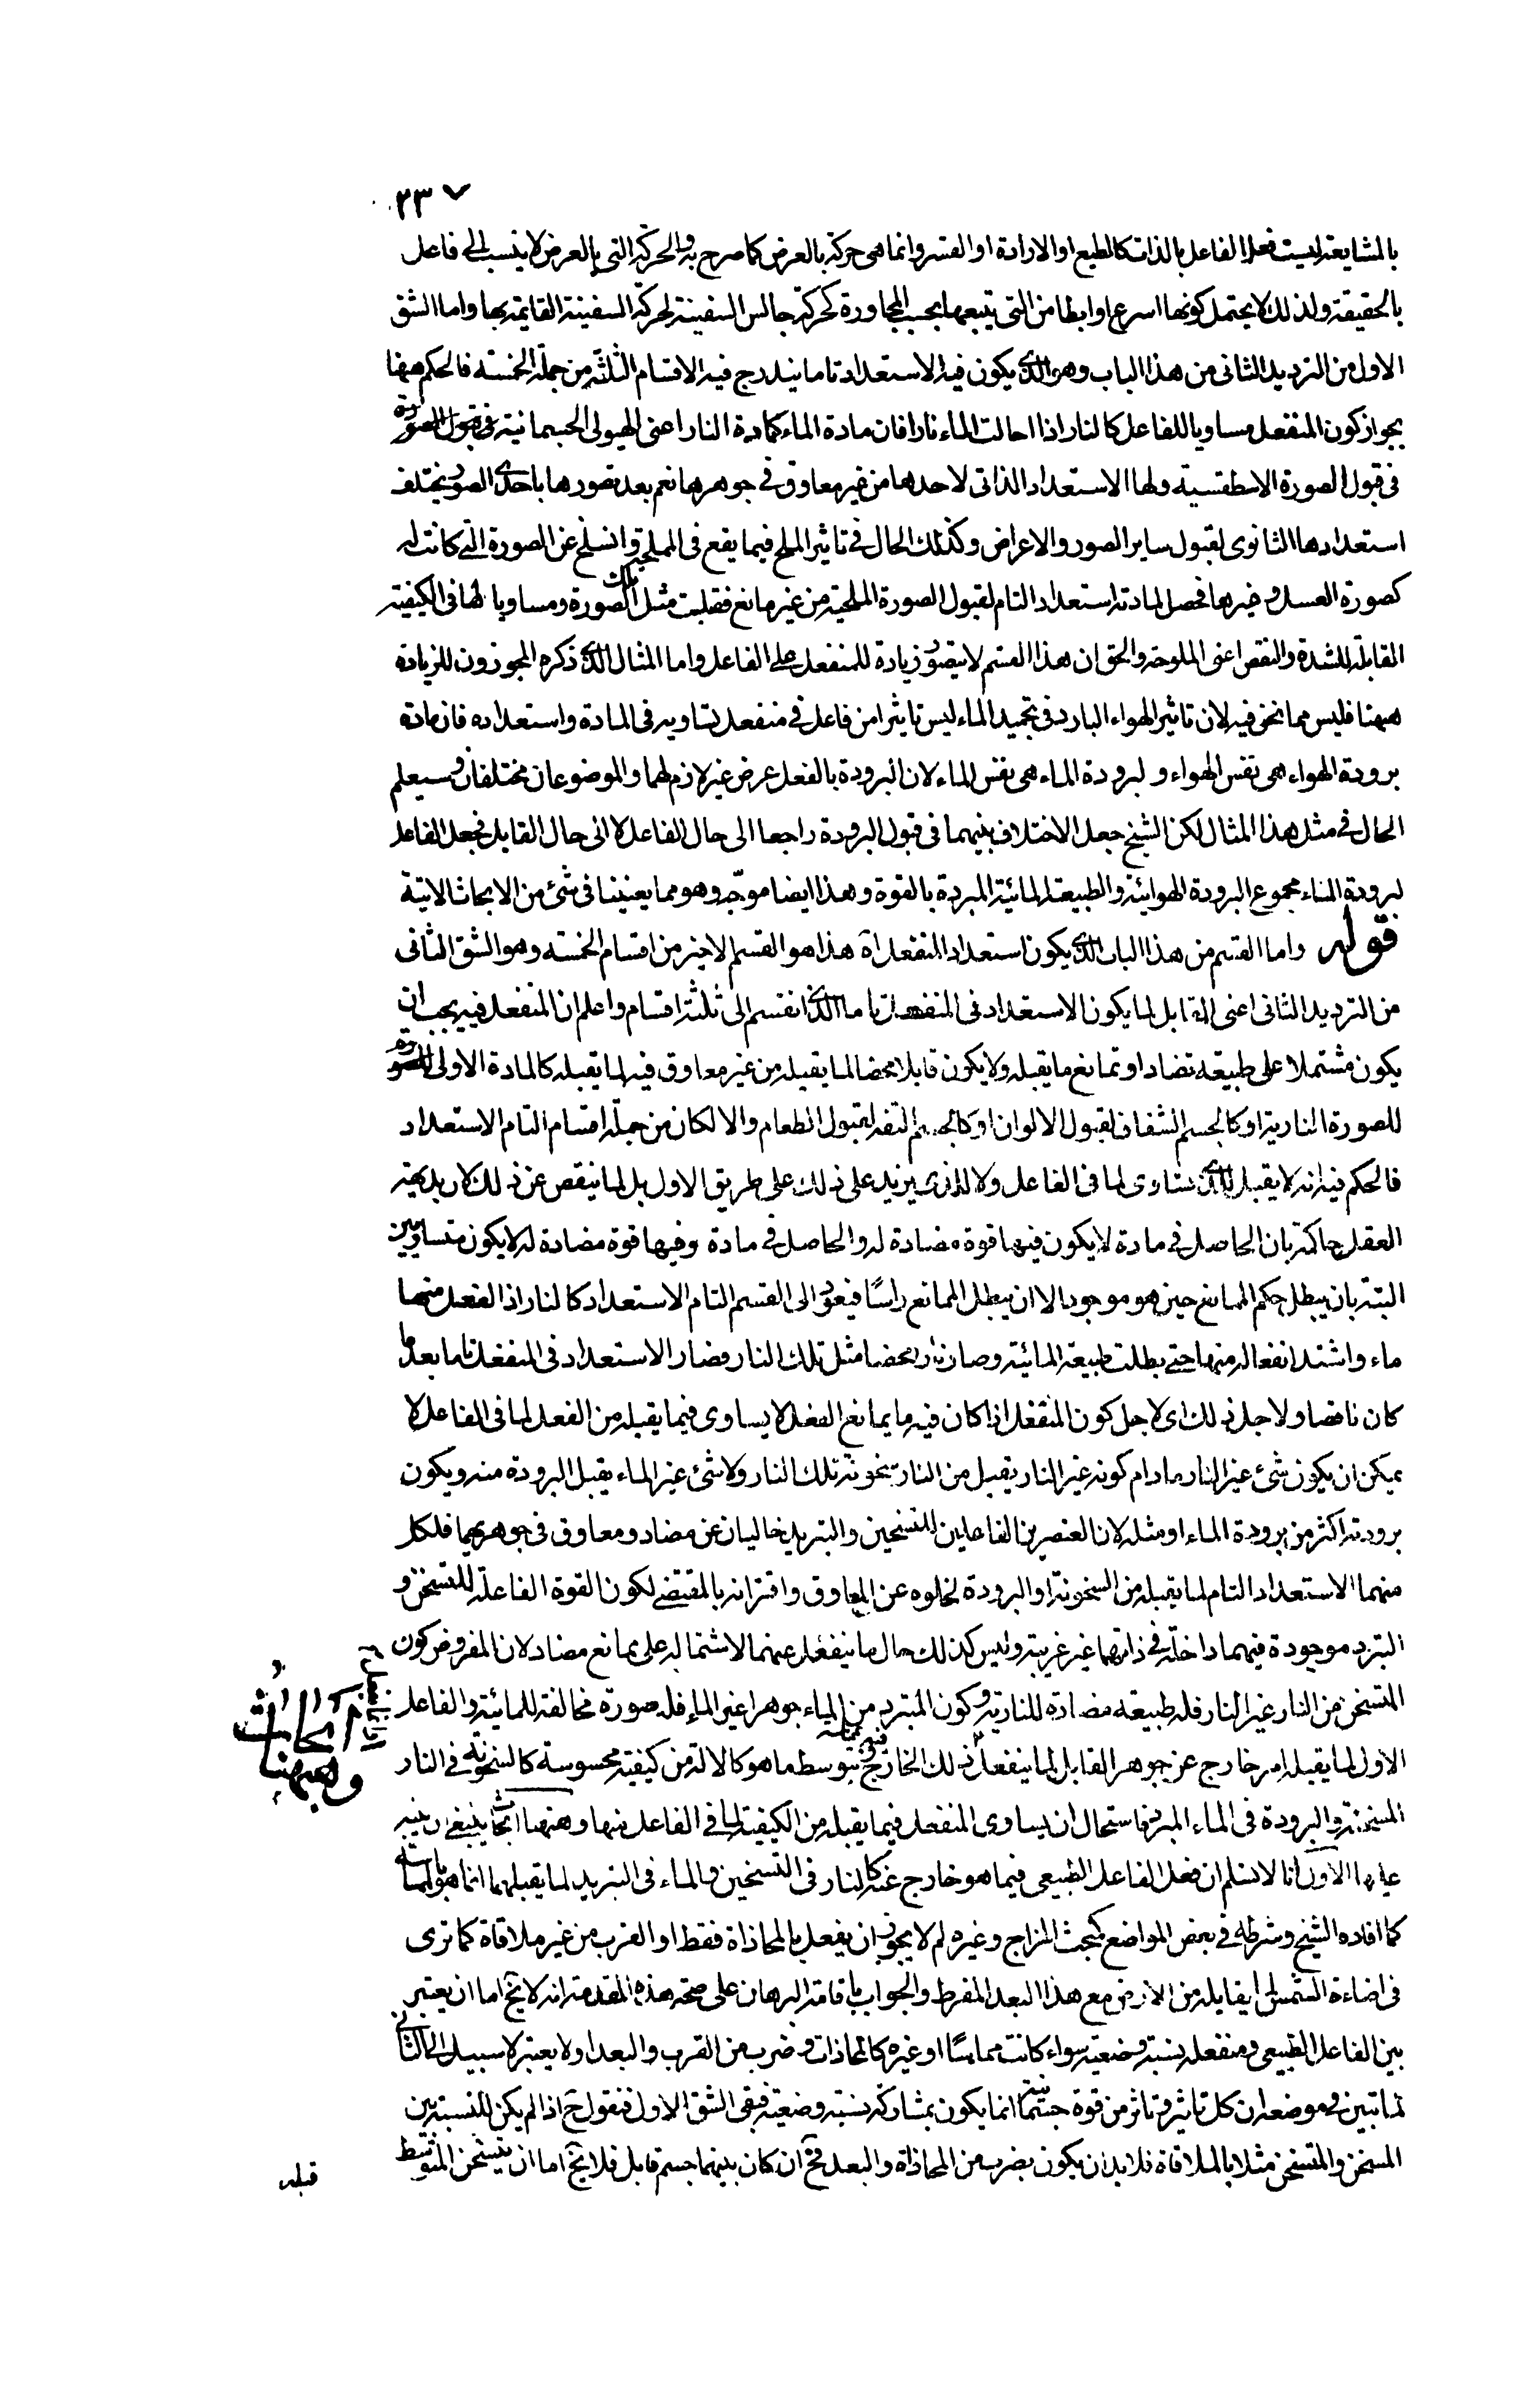 ٢٣٧
بالمشايعة ليست فعلا لفاعل بالذات كالطبع او الارادة او القسر وانما هى حركة بالعرض كما صرح به والحركة التى بالعرض لا ينسب الى فاعل
بالحقيقة ولذلك لا يحتمل كونها اسرع او ابطا من التى تتبعها بحسب المجاورة كحركة جالس السفينة لحركة السفينة القايمة بها واما الشق
الاول من الترديد الثانى من هذا الباب وهو الذى يكون فيه الاستعداد تاما يندرج فيه الاقسام الثلثة من جملة الخمسة فالحكم ههنا
بجواز كون المنفعل مساويا للفاعل كالنار اذا احالت الماء نارا فان مادة الماء كمادة النار اعنى الهيولى الجسمانية فى قبول الصورة
فى قبول الصورة الاسطقسية ولها الاستعداد الذاتى لاحدها من غير معاوق فى جوهرها نعم بعد تصورها باحدى الصور يختلف
استعدادها الثانوى لقبول ساير الصور والاعراض وكذلك الحال فى تاثير الملح فيما يقع فى المملحة وانسلخ عن الصورة التى كانت له
كصورة العسل وغيرها فحصل لمادته استعداد التام لقبول الصورة الملحية من غير مانع فقبلت مثل تلك الصورة ومساويا لها فى الكيفية
القابلة للشدة والنقص اعنى الملوحة والحق ان هذا القسم لا يتصور زيادة للمنفعل على الفاعل واما المثال الذى ذكره المجوزون للزيادة
ههنا فليس مما نحن فيه لان تاثير الهواء البارد فى تجميد الماء ليس تاثيرا من فاعل فى منفعل يساويه فى المادة واستعداده فان مادة
برودة الهواء هى نفس الهواء ولبرودة الماء هى نفس الماء لان البرودة بالفعل عرض غير لازم لهما والموضوعان مختلفان وسيعلم
الحال فى مثل هذا المثال لكن الشيخ جعل الاختلاف بينهما فى قبول البرودة راجعا الى حال الفاعل لا الى حال القابل فجعل الفاعل
لبرودة الماء مجموع البرودة الهوائية والطبيعة المائية المبردة بالقوة وهذا ايضا موجّه وهو مما يعنينا فى شئ من الابحاث الاتية
قوله واما القسم من هذا الباب الذى يكون استعداد المنفعل اه هذا هو القسم الاخير من اقسام الخمسة وهو الشق الثانى
من الترديد الثانى اعنى المقابل لما يكون الاستعداد فى المنفعل تاما الذى انقسم الى ثلثة اقسام واعلم ان المنفعل فيه يجب ان
يكون مشتملا على طبيعة تضاد او تمانع ما يقبله ولا يكون قابلا محضا لما يقبله من غير معاوق فيه لما يقبله كالمادة الاولى للصورة
للصورة النارية او كالجسم الشفاف لقبول الالوان او كالجسم التفه لقبول الطعام والا لكان من جملة اقسام التام الاستعداد
فالحكم فيه انه لا يقبل الذى يساوى لما فى الفاعل ولا الذى يزيد على ذلك على طريق الاول بل لما ينقص عن ذلك لان بديهة
العقل حاكمة بان الحاصل فى مادة لا يكون فيها قوة مضادة له والحاصل فى مادة وفيها قوة مضادة له لا يكون متساويين
البتة بان يبطل حكم الممانع حين هو موجود الا ان يبطل الممانع راسًا فيعود الى القسم التام الاستعداد كالنار اذا انفعل منها
ماء واشتد انفعاله منها حتى بطلت طبيعة المائية وصار نارا محضا مثل تلك النار فصار الاستعداد فى المنفعل تاما بعد ما
كان ناقصا ولاجل ذلك اى لاجل كون المنفعل اذا كان فيه ما يمانع الفعل لا يساوى فيما يقبله من الفعل لما فى الفاعل لا
يمكن ان يكون شئ غير النار ما دام كونه غير النار يقبل من النار سخونة تلك النار ولا شئ غير الماء يقبل البرودة منه ويكون
برودته اكثر من برودة الماء او مثله لان العنصرين الفاعلين للتسخين والتبريد خاليان عن مضاد ومعاوق فى جوهريهما فلكل
منهما الاستعداد التام لما يقبله من السخونة او البرودة لخلوه عن المعاوق واقترانه بالمقتضى لكون القوة الفاعلة للتسخن و
التبرد موجودة فيهما داخلة فى ذاتهما غير غريبة وليس كذلك حال ما ينفعل عنهما لاشتماله على مانع مضاد لان المفروض كون
المتسخن من النار غير النار فله طبيعة مضادة للنارية وكون المتبرد من الماء جوهرا غير الماء فله صورة مخالفة للمائية والفاعل
الاول لما يقبله امر خارج عن جوهر القابل لما ينفعل ذلك الخارج فيه بتوسط ما هو كالالة من كيفية محسوسة كالسخونة فى النار
المسخنة والبرودة فى الماء المبرد فاستحال ان يساوى المنفعل فيما يقبله من الكيفية لما فى الفاعل منها وههنا ابحاث ينبغى ان ينبه
عليها الاول انا لا نسلم ان فعل الفاعل الطبيعى فيما هو خارج عنه كالنار فى التسخين والماء فى التبريد لما يقبلهما انما هو بالمماسة
كما افاده الشيخ وشرطه فى بعض المواضع كمبحث المزاج وغيره لم لا يجوز ان يفعل بالمحاذاة فقط او القرب من غير ملاقاة كما ترى
فى اضاءة الشمس لما يقابله من الارض مع هذا البعد المفرط والجواب باقامة البرهان على صحة هذه المقدمة انه لا يخ اما ان يعتبر
بين الفاعل الطبيعى ومنفعله نسبة وضعية سواء كانت مماسًا او غيره كالمحاذات وضرب من القرب والبعد او لا يعتبر لا سبيل الى الثانى
لما تبين فى موضعه ان كل تاثير وتاثر من قوة جسمانية انما يكون بمشاركة نسبة وضعية فبقى الشق الاول فنقول ح اذا لم يكن للنسبة بين
المسخن والمتسخن مثلا بالملاقاة فلا بد ان يكون بضرب من المحاذاة والبعد فح ان كان بينهما جسم قابل فلا يخ اما ان يتسخن المتوسط
قبله
وههنا ابحاث